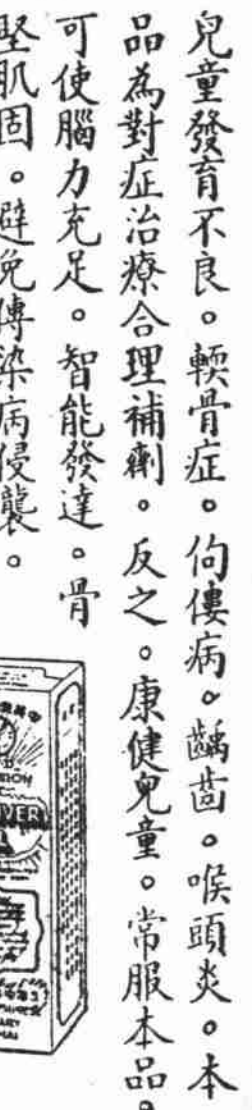 兒童發育不良。輭骨症。佝僂病。齲齒。喉頭炎。本
品為對症治療合理補劑。反之。康健兒童。常服本品。
可使腦力充足。智能發達。骨
堅肌固。避免傳染病侵襲。